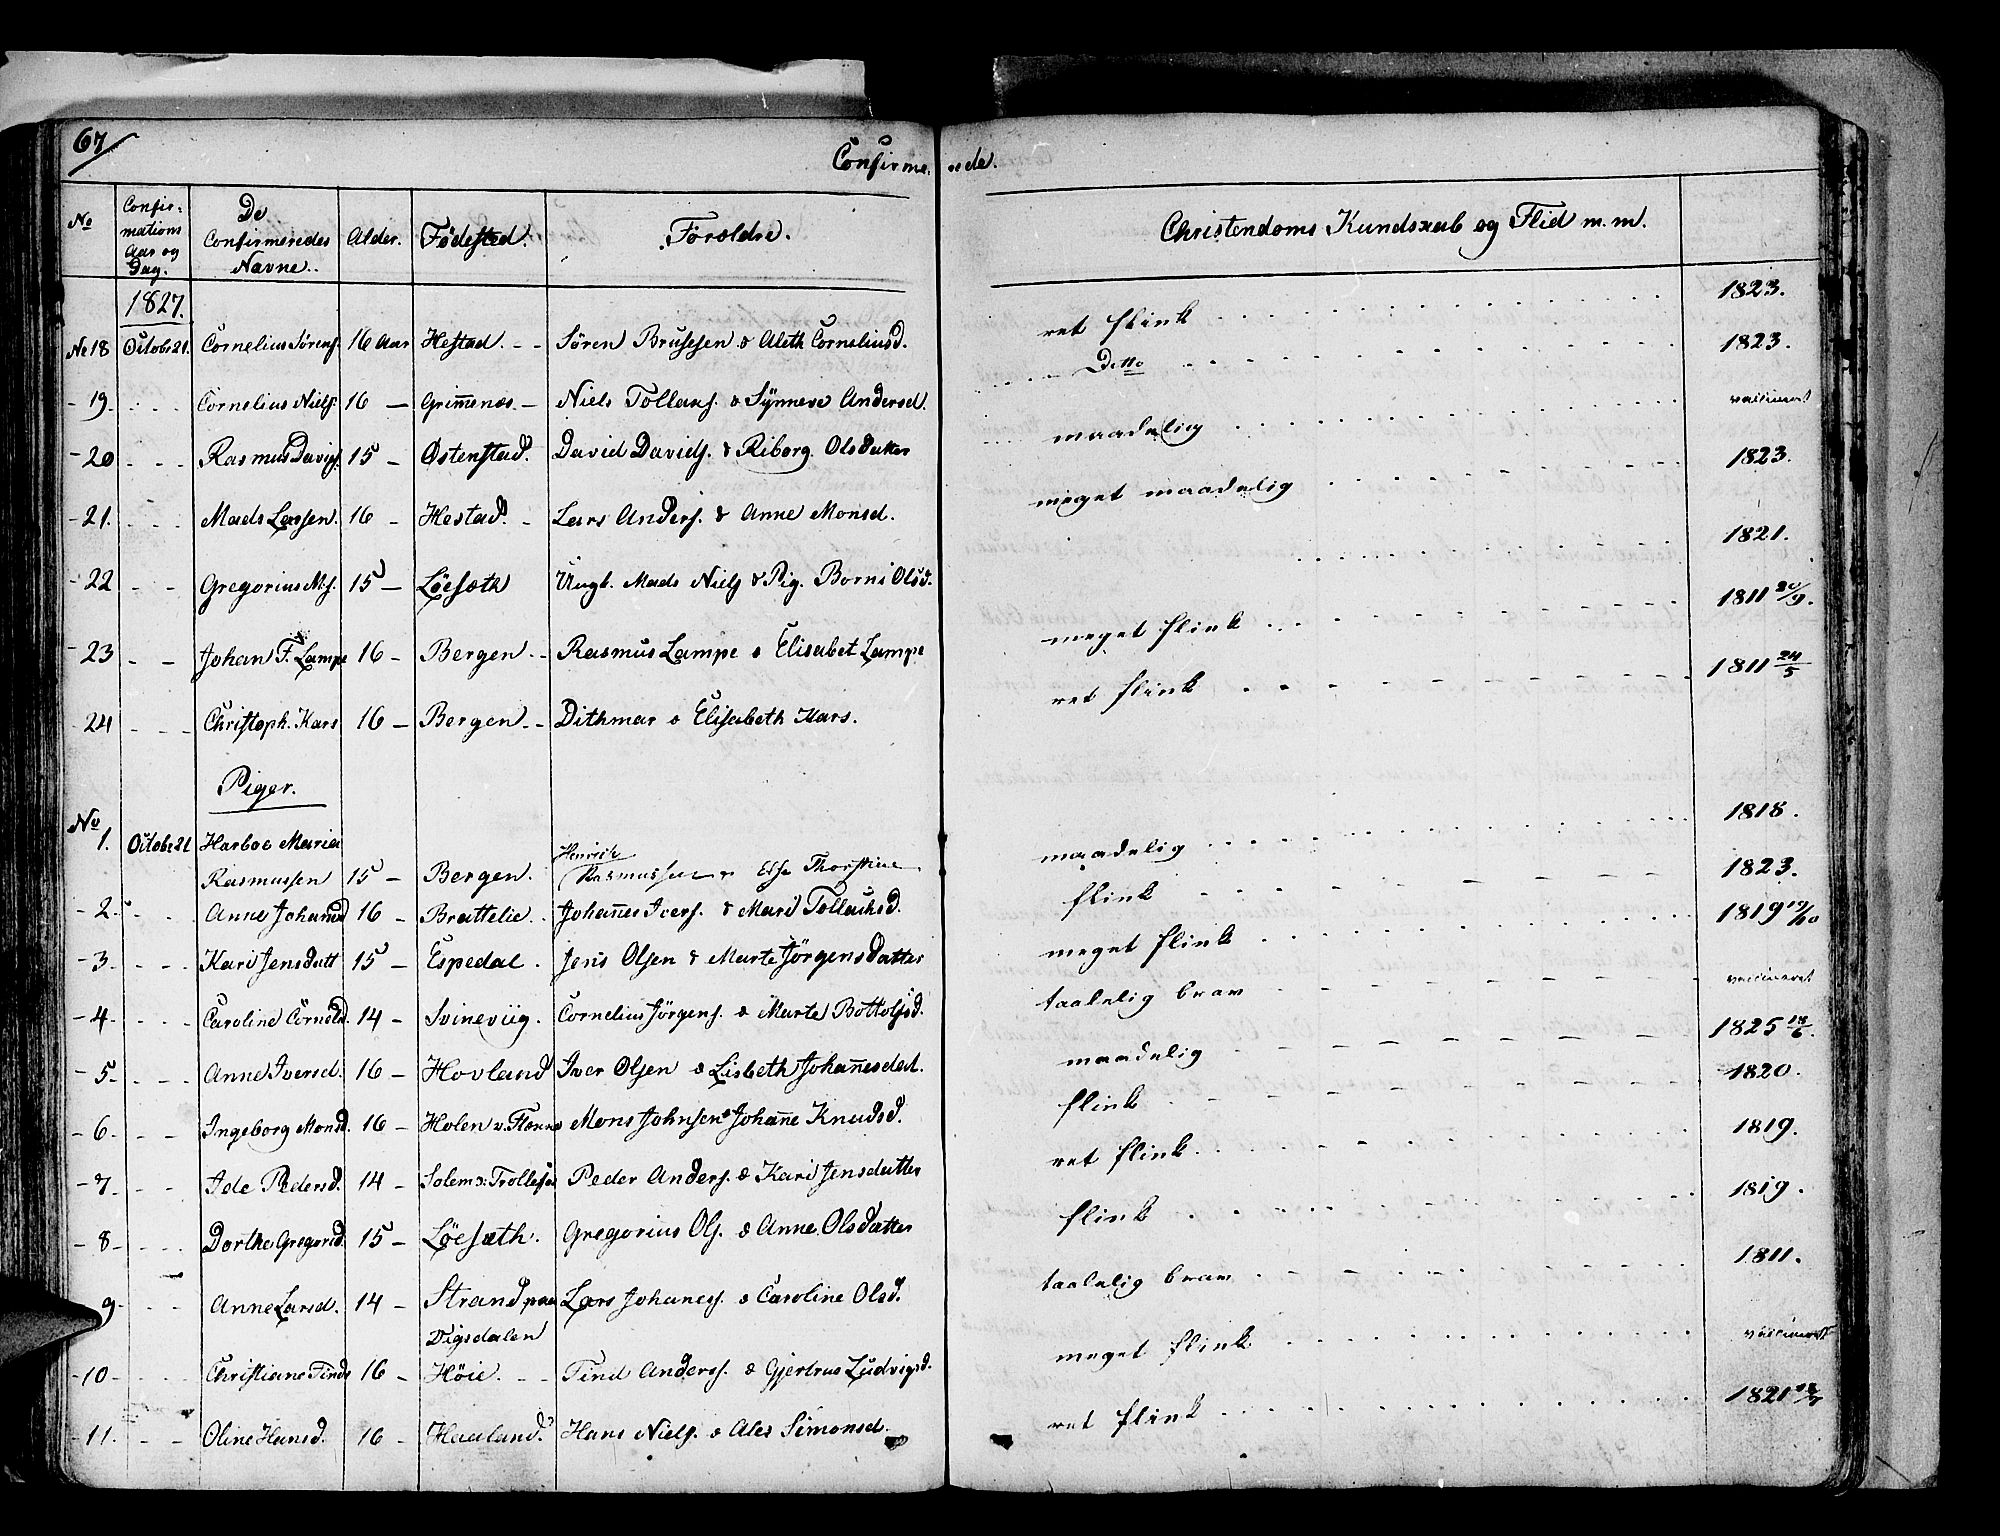 67
Confirme- ede.
No
Confir-
mations
Aar og
Dag.
De
Confirmeredes
Navne.
Alder.
Födested.
Foroldre.
Christendoms Kundskab og Flid m. m.
1827.
No 18 Octobr 21. Cornelius Sörens. 16 Aar Hestad. - - Sören Brussen & Aleth Corneliusd. ret flink 1823.
- 19. Cornelius Niels. 16 — Grim̄enæs - Niels Tollaks. & Synneve Andersd. Ditto 1823.
- 20 Rasmus Davids. 15 - Østenstad. David Davids. & Riborg Olsdatter maadelig vaccineret
- 21. Mads Larssen. 16 - Hestad. - Lars Anders. & Anne Monsd. meget maadelig 1823.
- 22 Gregorius Ms. 15 - Löesæth Ungk. Mads Niels & Pig. Borni Olsd. 1821.
- 23 Johan F. Lampe 16 - Bergen - - Rasmus Lampe & Elisabet Lampe meget flink 1811 20/9.
- 24 Christoph. Kars 16 - Bergen - - Dithmar & Elisabeth Kars. ret flink 1811 24/5
Piger.
No
1. Octobr 21 Harboe Maria
Rasmussen 15 - Bergen. Henrich Rasmussen & Else Thorstine maadelig 1818.
- 2. Anne Johan̄sd 16 - Brattelie. Johan̄es Ivers. & Mari Tollachsd. flink 1823.
- 3. Kari Jensdatt 15 - Espedal. Jens Olsen & Marte Jörgensdatter meget flink 1819 19/10
- 4. Caroline Cornelsd. 14 - Svineviig. Cornelius Jörgens. & Marte Bottolfsd. taalelig brav vaccineret
- 5. Anne Iversd. 16 - Hovland Iver Olsen & Lisbeth Johan̄esdat. maadelig 1825 18/6.
- 6. Ingeborg Monsd. 16 - Holen v. Mons Johnsen & Johan̄e Knudsd. flink 1820.
- 7. Ide Pedersd. 14 - Solem Peder Anders. & Kari Jensdatter ret flink 1819.
- 8 - Dorthe Gregorid. 15 - Löesæth. Gregorius Ols. & Anne Olsdatter flink 1819.
9 - Anne Larsd. 14 - Strand paa Lars Johanes. & Caroline Olsd. taalelig brav 1811.
Digsdalen
- 10 - Christiane Finds 16 - Höie. - - Find Anderss. & Gjertrus Ludvigsd. meget flink vaccineret
- 11. Oline Hansd. 16 - Haaland. Hans Niels. & Ales Simonsd. ret flink 1821